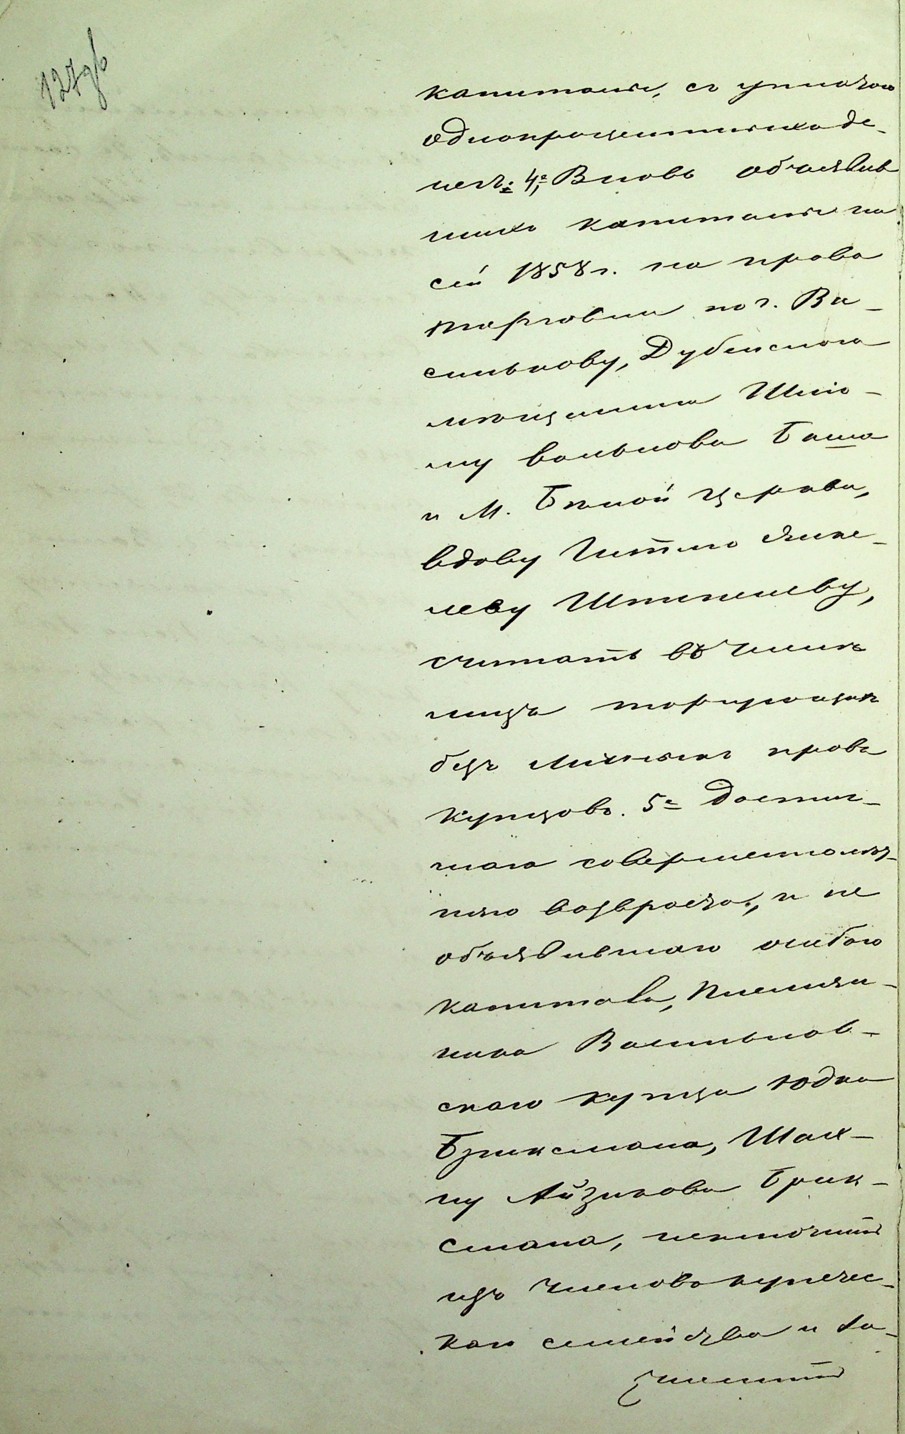 127об
капиталы, съ уплатою
однопроцентныхъ де-
негъ; 4е, Вновь объявив
шихъ капиталы на
сей 1858 г. на право
торговли по г. Ва-
силькову, Дубенскаго
мѣщанина Шлио-
му Волькова Баша
и М. Бѣлой Церкви,
вдову Гитлю Янке-
леву Шпилеву,
считать въ числѣ
лицъ торгующихъ
безъ личныхъ правъ
купцовъ. 5е Достиг-
шаго совершеннолѣт-
няго возвраста, и не
объявившаго особаго
капитала, племян-
ника Васильков-
скаго купца Юдка
Бриксмана, Шах-
ну Айзикова Брик-
смана, исключить
изъ членовъ купечес-
каго семейства и за-
числить